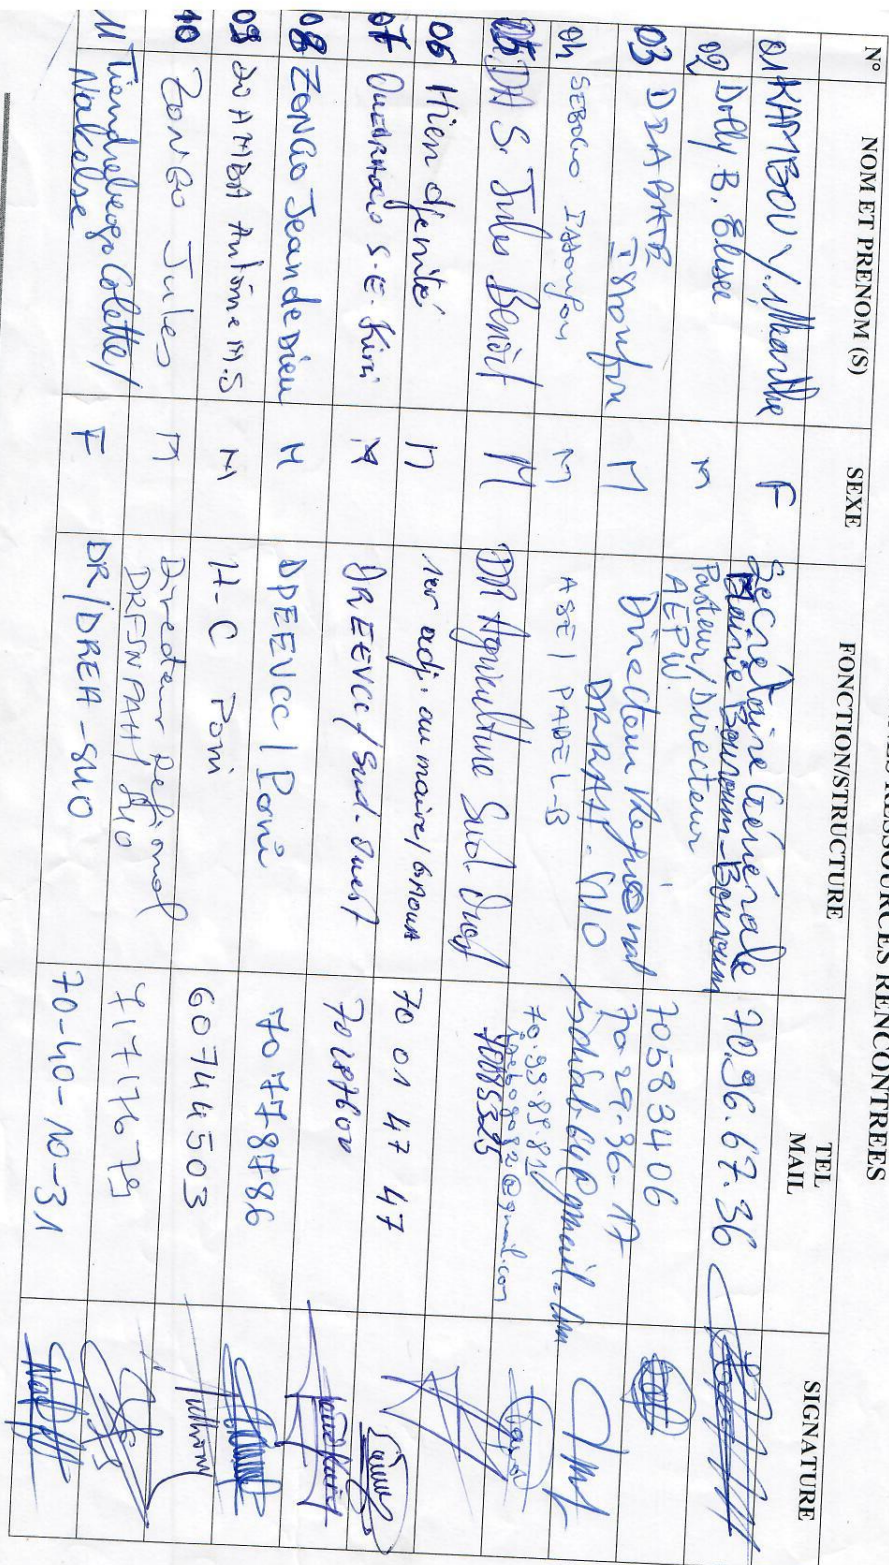 RESSOURCES RENCONTREES
N° NOM ET PRENOM (S) SEXE FONCTION/STRUCTURE TEL MAIL SIGNATURE
01 KAMBOU Y. Marthe F Secrétaire Générale Mairie Bouroum-Bouroum 70.96.67.36
02 Dolly B. Elisée M Pasteur/Directeur AEPW. 70583406
03 DIABATE Issoufou M Directeur Régional DRRAH-SUO 70-29-36-17
04 SEBOGO Issoufou M ASE/PADEL-B 70.99.89.81
@gmail.com
05 DA S. Jules Benoît M DR Agriculture Sud Ouest 70085325
06 Hien djemité M 1er adj. au maire/ 70 01 47 47
07 S.E. Kiri M DREEVCC/Sud-Ouest
08 ZONGO Jean de Dieu M DPEEVCC/Poni 70 77 87 86
09 Antoine M.S M H-C Poni 60744503
10 ZONGO Jules M Directeur Régional DRFSNFAH/SUO 71717679
11 Tiendrebeogo Colette/ Nakelse F DR/DREA-SUO 70-40-10-31